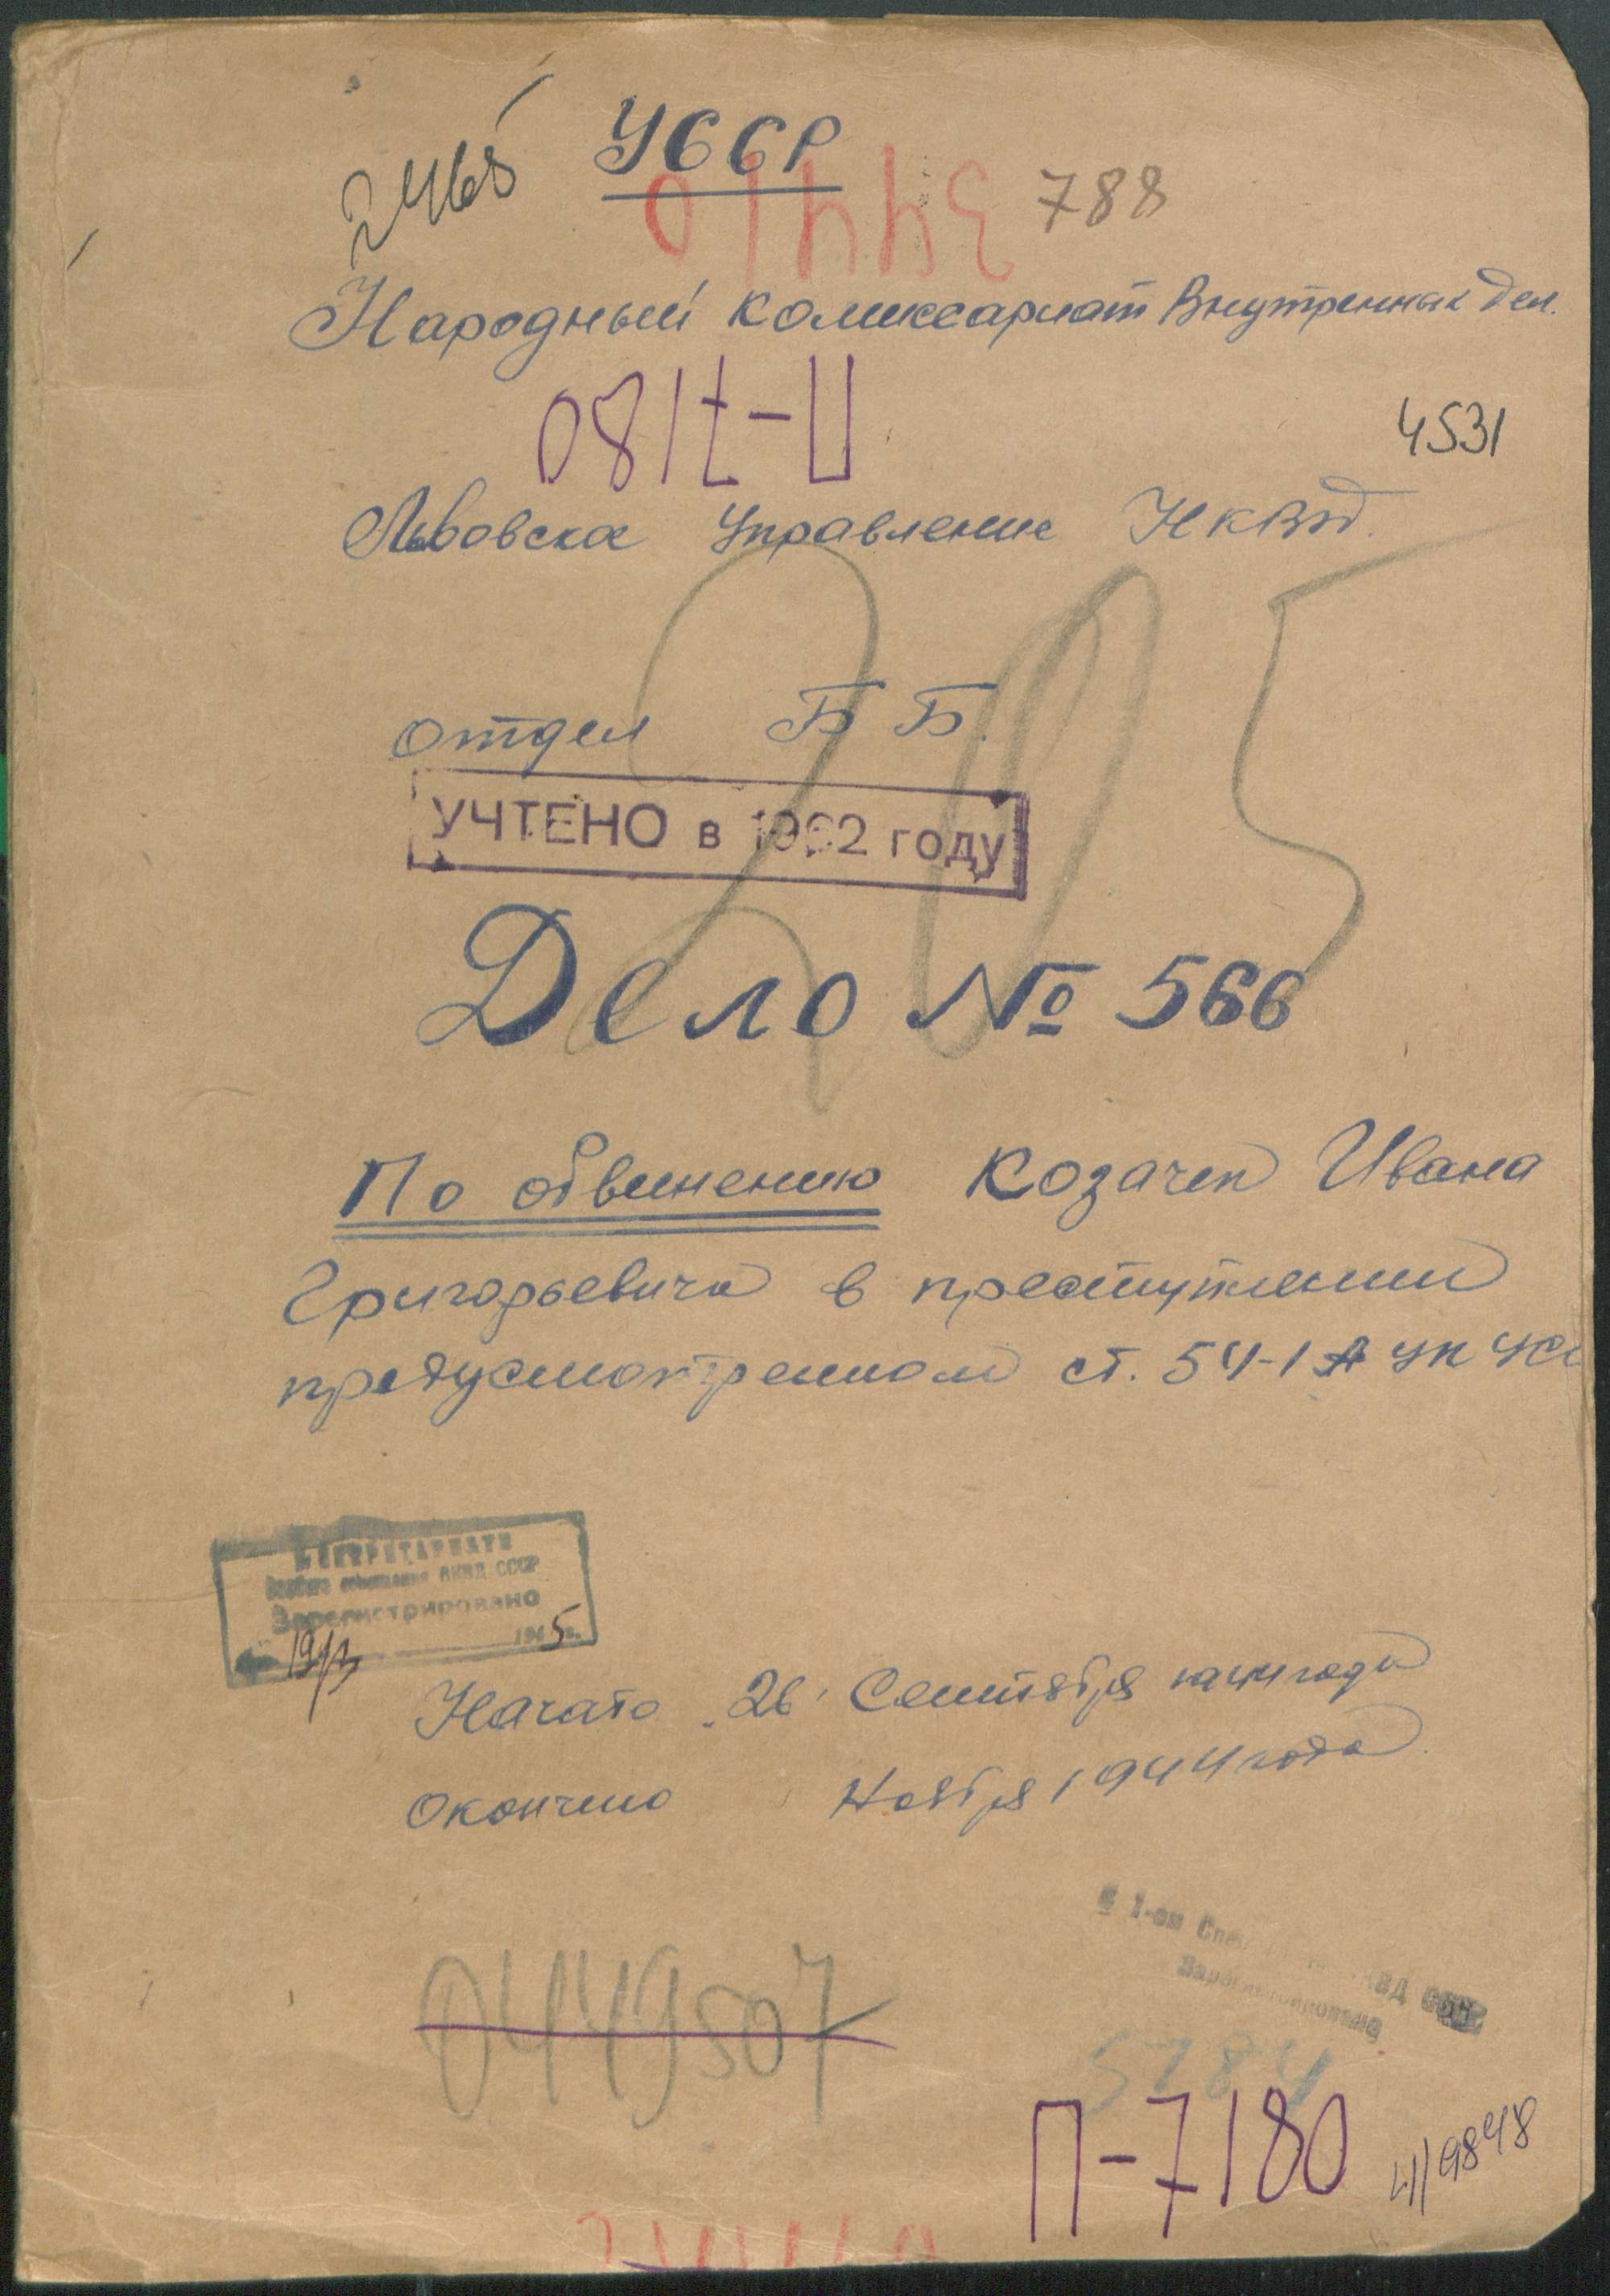 2465
УССР
34410
788
Народный комиссариат Внутренных Дел.
П-7180
4531
Львовская Управление НКВД.
205
отдел ББ.
УЧТЕНО в 1962 году
Дело № 566
По обвинению Козачек Ивана
Григорьевича в преступлении
предусмотренном ст. 54-1А УК УСС
СЕКРЕТАРИАТЕ
Особого совещания НКВД СССР
Зарегистрировано
19/3 1945 г.
Начато "26" Сентября 1944 года
Окончено Ноября 1944 года
В 1-ом Спец НКВД
Зарегистрировано
0449507
5784
П-7180
4/9848